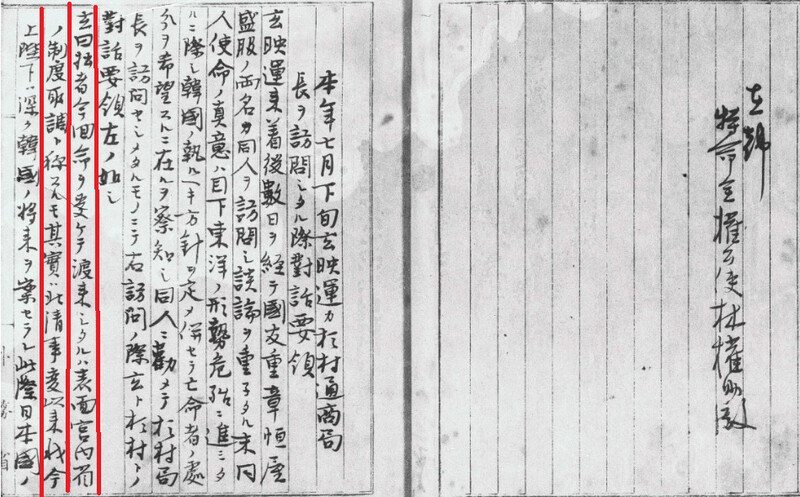 在韓
特命全權公使林權助殿
本年七月下旬玄映運カ杉村通商局
長ヲ訪問シタル際對話要領
玄映運来着後數日ヲ経テ國友重章恒屋
盛服ノ両名カ同人ヲ訪問シ談論ヲ重子タル末同
人使命ノ真意ハ目下東洋ノ形勢危殆ニ進ミタ
ルニ際シ韓國ノ執ルヘキ方針ヲ定メ併セテ亡命者ノ處
分ヲ希望スルニ在ルヲ察知シ同人ニ勸メテ杉村局
長ヲ訪問セシメタルモノニテ右訪問ノ際玄ト杉村トノ
對話要領左ノ如シ
玄曰拙者今回命ヲ受ケテ渡来シタルハ表面宮内省
ノ制度取調ト称スルモ其實ハ北清事変以来我今
上陛下ハ深ク韓國ノ将来ヲ案セラレ此際日本國ノ